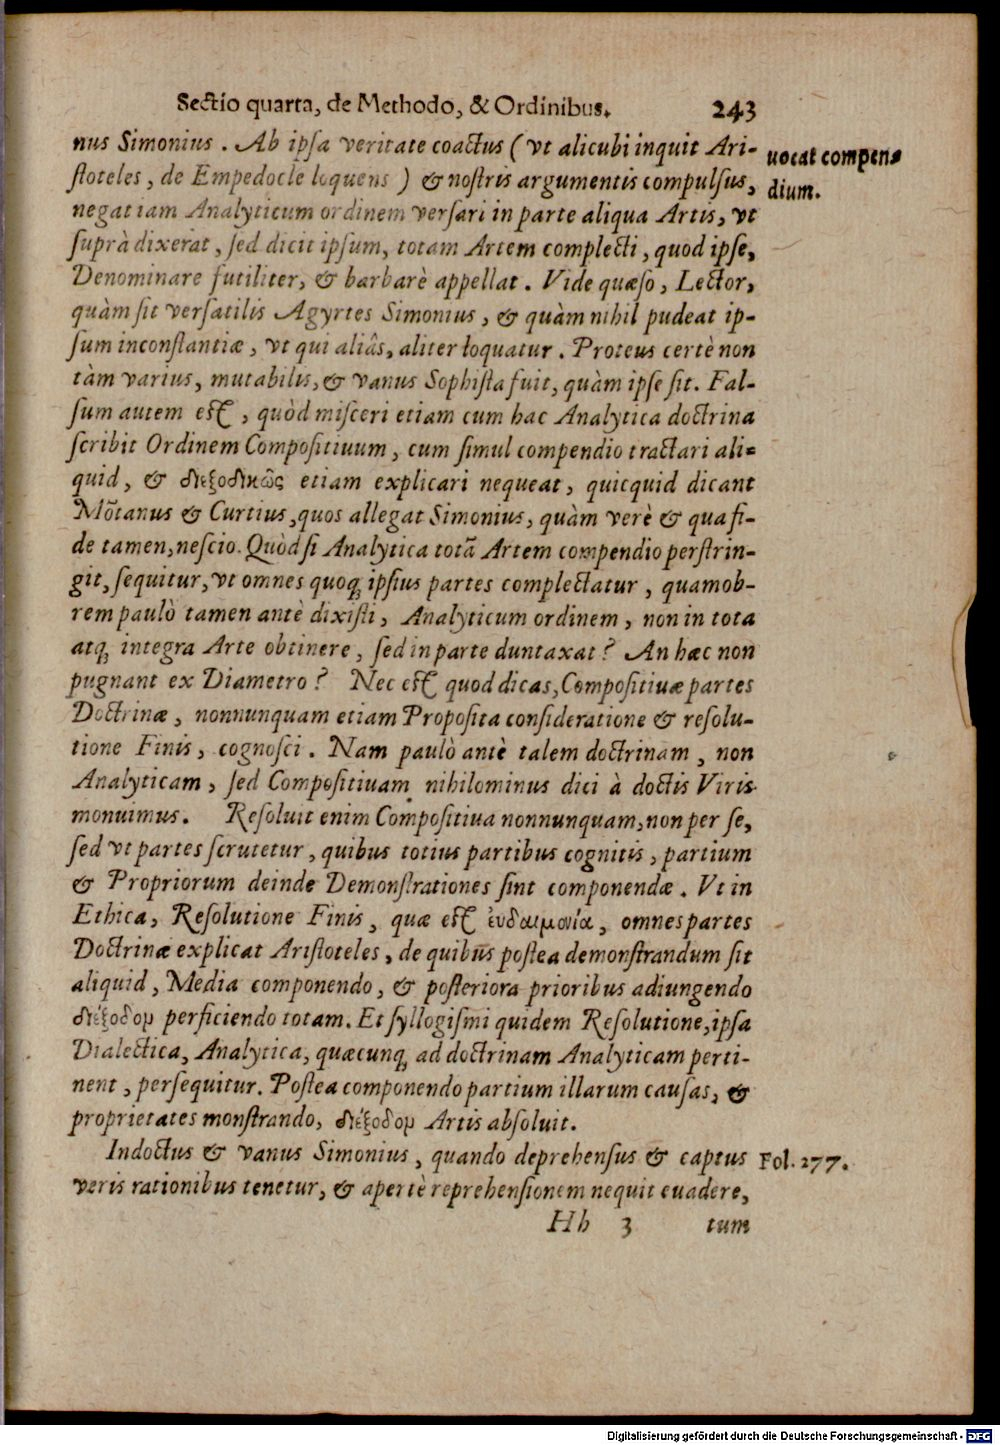 Sectio quarta, de Methodo, & Ordinibus. 243
nus Simonius. Ab ipsa veritate coactus (vt alicubi inquit Ari-
vocat compen-
stoteles, de Empedocle loquens) & nostris argumentis compulsus,
dium.
negat iam Analyticum ordinem versari in parte aliqua Artis, vt
suprà dixerat, sed dicit ipsum, totam Artem complecti, quod ipse,
Denominare futiliter, & barbarè appellat. Vide quæso, Lector,
quàm sit versatilis Agyrtes Simonius, & quàm nihil pudeat ip-
sum inconstantiæ, vt qui aliâs, aliter loquatur. Proteus certè non
tàm varius, mutabilis, & vanus Sophista fuit, quàm ipse sit. Fal-
sum autem est, quòd misceri etiam cum hac Analytica doctrina
scribit Ordinem Compositiuum, cum simul compendio tractari ali-
quid, & διεξοδικῶς etiam explicari nequeat, quicquid dicant
Mõtanus & Curtius, quos allegat Simonius, quàm verè & qua fi-
de tamen, nescio. Quòd si Analytica totã Artem compendio perstrin-
git, sequitur, vt omnes quoq; ipsius partes complectatur, quamob-
rem paulò tamen antè dixisti, Analyticum ordinem, non in tota
atq; integra Arte obtinere, sed in parte duntaxat? An hæc non
pugnant ex Diametro? Nec est quod dicas, Compositiuæ partes
Doctrinæ, nonnunquam etiam Proposita consideratione & resolu-
tione Finis, cognosci. Nam paulò antè talem doctrinam, non
Analyticam, sed Compositiuam nihilominus dici à doctis Viris
monuimus. Resoluit enim Compositiua nonnunquam, non per se,
sed vt partes scrutetur, quibus totius partibus cognitis, partium
& Propriorum deinde Demonstrationes sint componendæ. Vt in
Ethica, Resolutione Finis, quæ est ἐυδαιμονία, omnes partes
Doctrinæ explicat Aristoteles, de quibus postea demonstrandum sit
aliquid, Media componendo, & posteriora prioribus adiungendo
διέξοδον perficiendo totam. Et syllogismi quidem Resolutione, ipsa
Dialectica, Analytica, quæcunq; ad doctrinam Analyticam perti-
nent, persequitur. Postea componendo partium illarum causas, &
proprietates monstrando, διέξοδον Artis absoluit.
Indoctus & vanus Simonius, quando deprehensus & captus
Fol. 277.
veris rationibus tenetur, & apertè reprehensionem nequit euadere,
Hh 3 tum
Digitalisierung gefördert durch die Deutsche Forschungsgemeinschaft - DFG